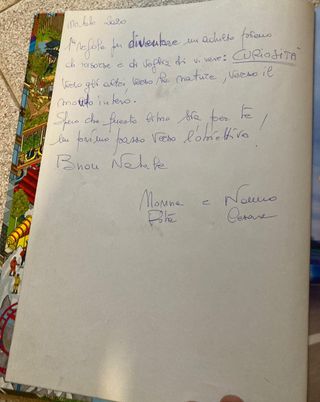 Natale 2020
1ª regola per diventare un adulto pieno
di risorse e di voglia di vivere: CURIOSITÀ
verso gli altri, verso la natura, verso il
mondo intero.
Spero che questo libro sia per te,
un primo passo verso l'obiettivo.
Buon Natale
Nonna e Nonno
Cesare